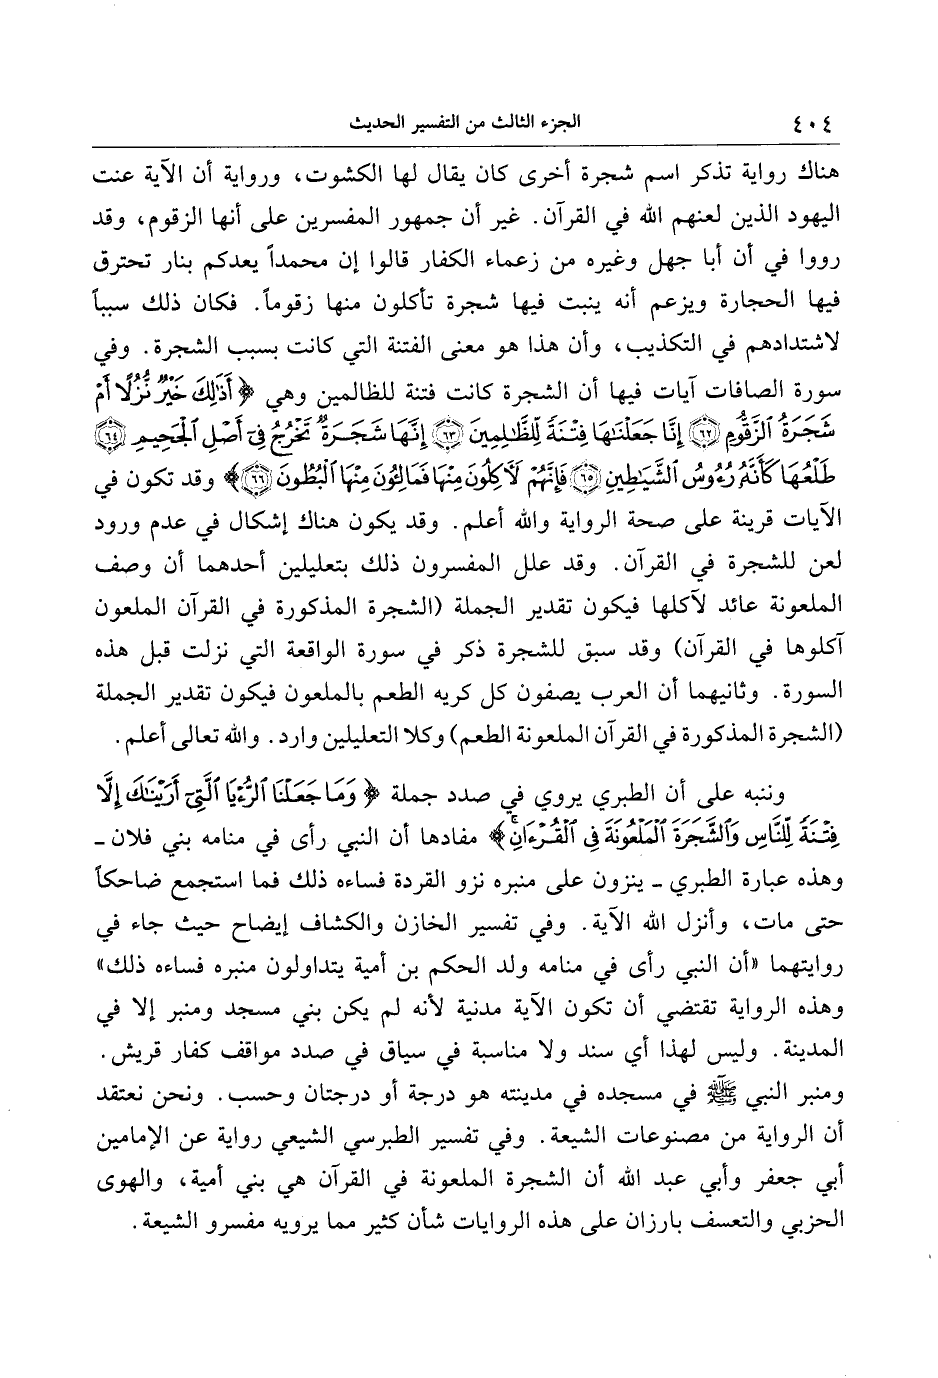 ٤٠٤ الجزء الثالث من التفسير الحديث
هناك رواية تذكر اسم شجرة أخرى كان يقال لها الكشوت، ورواية أن الآية عنت
اليهود الذين لعنهم الله في القرآن. غير أن جمهور المفسرين على أنها الزقوم، وقد
رووا في أن أبا جهل وغيره من زعماء الكفار قالوا إن محمداً يعدكم بنار تحترق
فيها الحجارة ويزعم أنه ينبت فيها شجرة تأكلون منها زقوماً. فكان ذلك سبباً
لاشتدادهم في التكذيب، وأن هذا هو معنى الفتنة التي كانت بسبب الشجرة. وفي
سورة الصافات آيات فيها أن الشجرة كانت فتنة للظالمين وهي ﴿أَذَٰلِكَ خَيْرٌ نُّزُلًا أَمْ
شَجَرَةُ ٱلزَّقُّومِ ٦٢ إِنَّا جَعَلْنَٰهَا فِتْنَةً لِّلظَّٰلِمِينَ ٦٣ إِنَّهَا شَجَرَةٌ تَخْرُجُ فِىٓ أَصْلِ ٱلْجَحِيمِ ٦٤
طَلْعُهَا كَأَنَّهُۥ رُءُوسُ ٱلشَّيَٰطِينِ ٦٥ فَإِنَّهُمْ لَآكِلُونَ مِنْهَا فَمَالِـُٔونَ مِنْهَا ٱلْبُطُونَ ٦٦﴾ وقد تكون في
الآيات قرينة على صحة الرواية والله أعلم. وقد يكون هناك إشكال في عدم ورود
لعن للشجرة في القرآن. وقد علل المفسرون ذلك بتعليلين أحدهما أن وصف
الملعونة عائد لآكلها فيكون تقدير الجملة (الشجرة المذكورة في القرآن الملعون
آكلوها في القرآن) وقد سبق للشجرة ذكر في سورة الواقعة التي نزلت قبل هذه
السورة. وثانيهما أن العرب يصفون كل كريه الطعم بالملعون فيكون تقدير الجملة
(الشجرة المذكورة في القرآن الملعونة الطعم) وكلا التعليلين وارد. والله تعالى أعلم.
وننبه على أن الطبري يروي في صدد جملة ﴿وَمَا جَعَلْنَا ٱلرُّءْيَا ٱلَّتِىٓ أَرَيْنَٰكَ إِلَّا
فِتْنَةً لِّلنَّاسِ وَٱلشَّجَرَةَ ٱلْمَلْعُونَةَ فِى ٱلْقُرْءَانِ﴾ مفادها أن النبي رأى في منامه بني فلان ـ
وهذه عبارة الطبري ـ ينزون على منبره نزو القردة فساءه ذلك فما استجمع ضاحكاً
حتى مات، وأنزل الله الآية. وفي تفسير الخازن والكشاف إيضاح حيث جاء في
روايتهما «أن النبي رأى في منامه ولد الحكم بن أمية يتداولون منبره فساءه ذلك»
وهذه الرواية تقتضي أن تكون الآية مدنية لأنه لم يكن بني مسجد ومنبر إلا في
المدينة. وليس لهذا أي سند ولا مناسبة في سياق في صدد مواقف كفار قريش.
ومنبر النبي ﷺ في مسجده في مدينته هو درجة أو درجتان وحسب. ونحن نعتقد
أن الرواية من مصنوعات الشيعة. وفي تفسير الطبرسي الشيعي رواية عن الإمامين
أبي جعفر وأبي عبد الله أن الشجرة الملعونة في القرآن هي بني أمية، والهوى
الحزبي والتعسف بارزان على هذه الروايات شأن كثير مما يرويه مفسرو الشيعة.